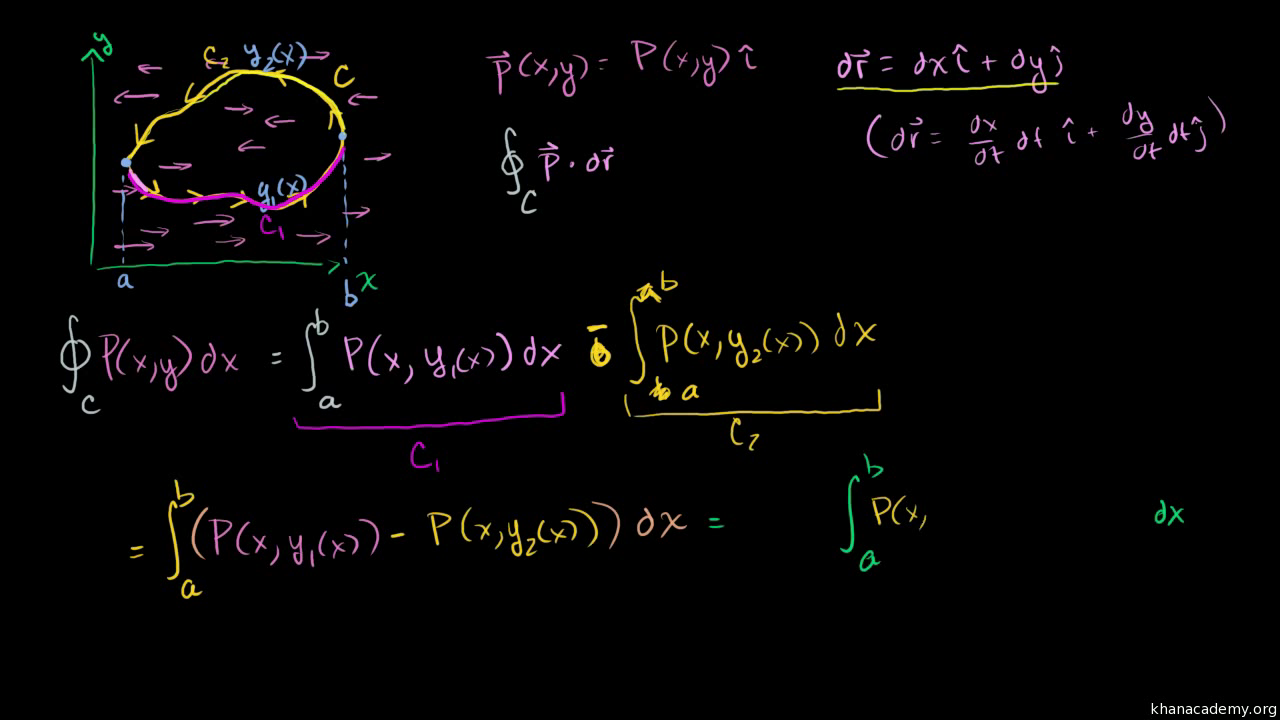 y
C₂ y₂(x) C
y₁(x)
C₁
a b x
p⃗(x,y) = P(x,y) î
dr⃗ = dx î + dy ĵ
(dr⃗ = dx/dt dt î + dy/dt dt ĵ)
∮_C p⃗ · dr⃗
∮_C P(x,y) dx = ∫_a^b P(x, y₁(x)) dx - ∫_a^b P(x, y₂(x)) dx
C₁ C₂
= ∫_a^b (P(x, y₁(x)) - P(x, y₂(x))) dx = ∫_a^b P(x, dx
khanacademy.org